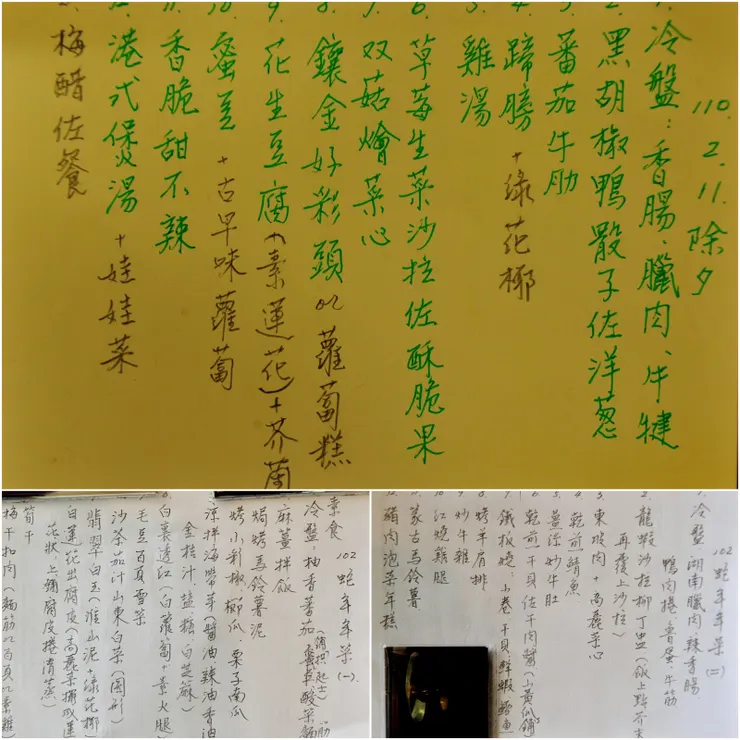 110.2.11.除夕
1. 冷盤：香腸、臘肉、牛犍
2. 黑胡椒鴨骰子佐洋蔥
3. 蕃茄牛肋
4. 蹄膀+綠花椰
5. 雞湯
6. 草莓生菜沙拉佐酥脆果
7. 双菇燴菜心
8. 鑲金好彩頭or蘿蔔糕
9. 花生豆腐(素蓮花)+芥蘭
10. 蜜豆+古早味蘿蔔
11. 香脆甜不辣
12. 港式煲湯+娃娃菜
梅醋佐餐
102 蛇年年菜(一)
素食
冷盤：柚香番茄
麻薑拌飯
焗烤馬鈴薯泥
烤小彩椒、櫛瓜 栗子南瓜
涼拌海帶芽(醬油辣油香油
金桔汁鹽糖+白芝蔴)
白裏透紅(白蘿蔔+素火腿)
毛豆百頁雪菜
沙茶茄汁山東白菜(圓形)
翡翠白玉淮山泥+綠花椰
白蓮花出腐皮(高麗菜擺成蓮
花狀上鋪腐皮捲清蒸)
筍干
梅干扣肉
102 蛇年年菜(二)
冷盤 湖南臘肉、辣香腸
鴨肉捲、魯蛋、牛筋
2. 龍蝦沙拉
再覆上沙拉)
3. 東坡肉+高麗菜心
4. 乾煎鯖魚
5. 薑絲炒牛肚
6. 乾煎干貝佐干肉醬
7. 鐵板燒：小卷干貝鮮蝦鱈魚
8. 烤羊肩排
9. 炒牛雜
10. 紅燒雞腿
11. 蒙古馬鈴薯
12. 豬肉泡菜年糕